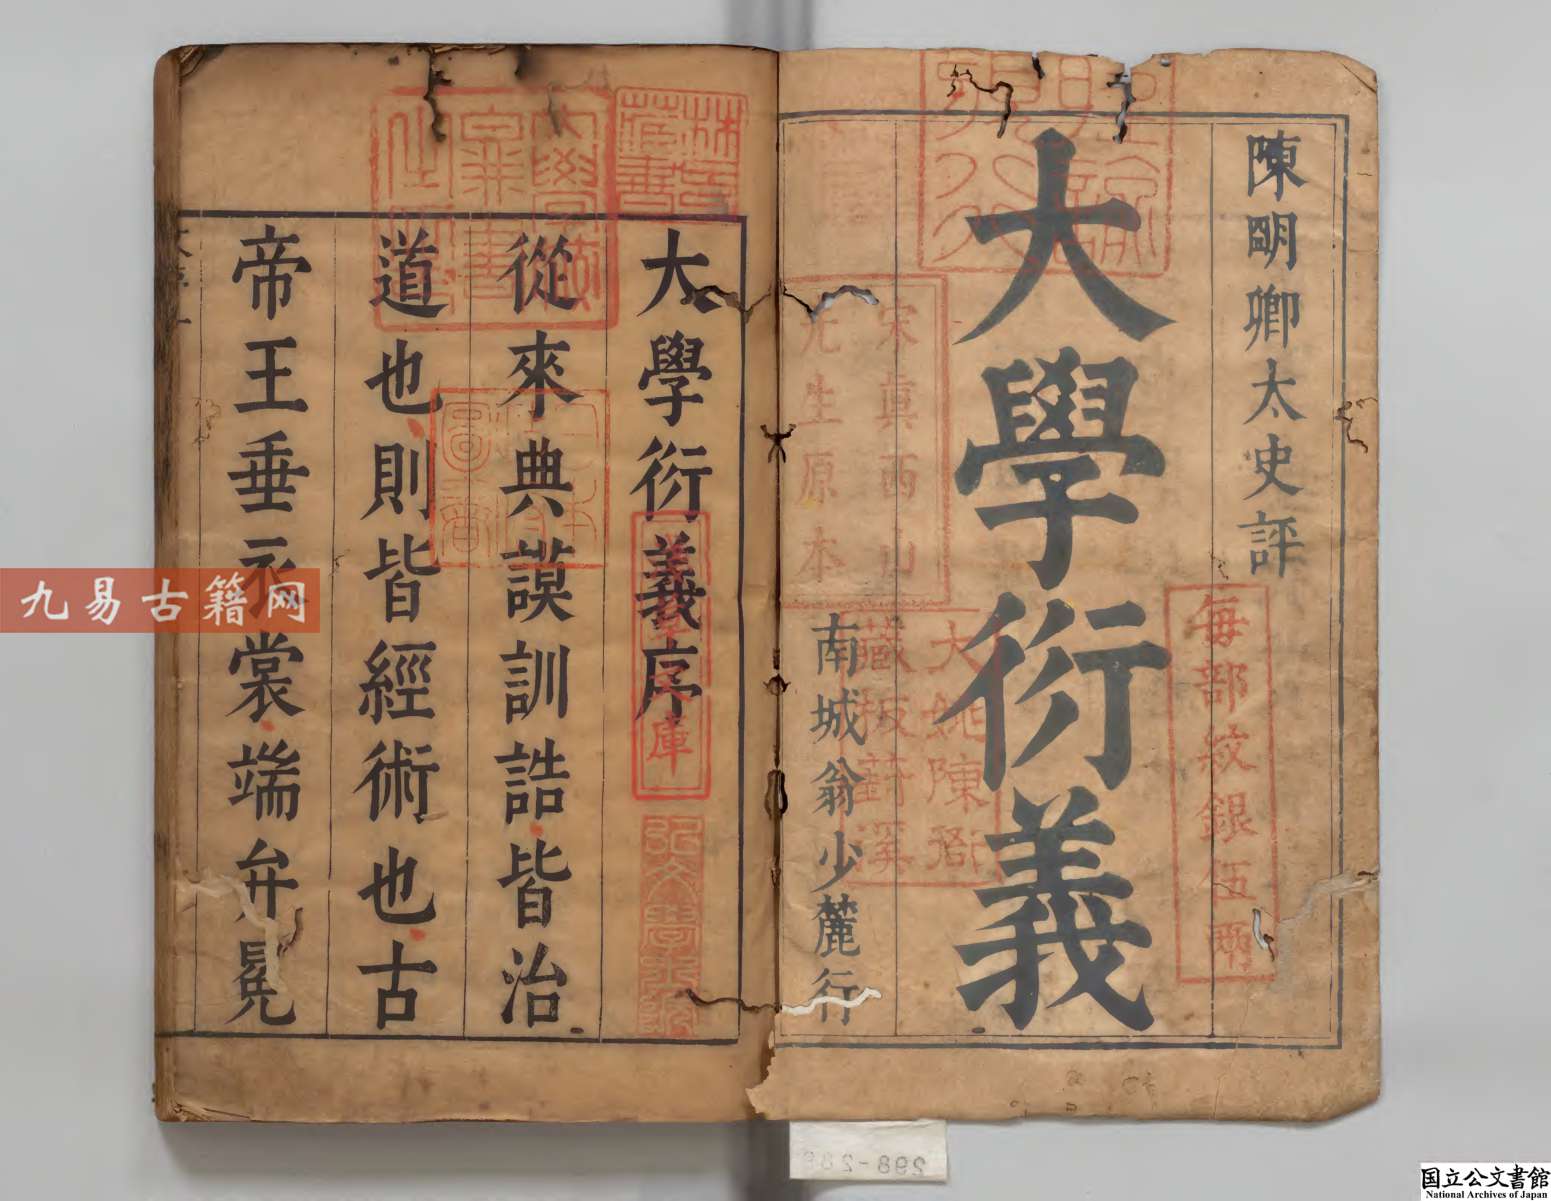 陳明卿太史評
大學衍義
宋眞西山
先生原本
南城翁少麓行
每部紋銀伍兩
藏板
大學衍義序
從來典謨訓誥皆治
道也則皆經術也古
帝王垂衣裳端弁冕
林氏藏書
庫
九易古籍网
298-2
国立公文書館
National Archives of Japan